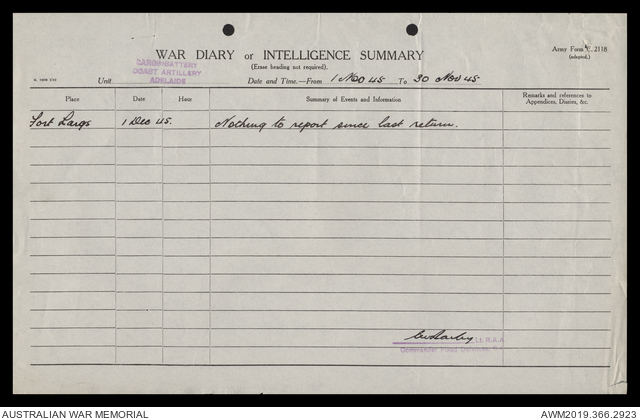 Army Form C. 2118
(adapted.)
WAR DIARY or INTELLIGENCE SUMMARY
(Erase heading not required).
Unit
BATTERY
COAST ARTILLERY
ADELAIDE
Date and Time.—From 1 Nov 45 To 30 Nov 45.
Place Date Hour Summary of Events and Information Remarks and references to
Appendices, Diaries, &c.
Fort Largs 1 Dec 45. Nothing to report since last return.
Lt. R.A.A
Commander Fixed Defences
AUSTRALIAN WAR MEMORIAL AWM2019.366.2923